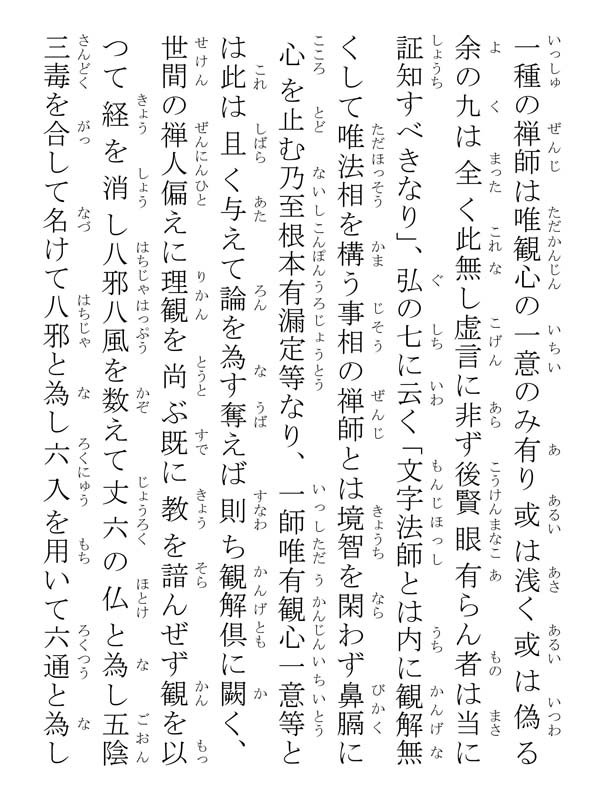 一種の禅師は唯観心の一意のみ有り或は浅く或は偽る
余の九は全く此無し虚言に非ず後賢眼有らん者は当に
証知すべきなり」、弘の七に云く「文字法師とは内に観解無
くして唯法相を構う事相の禅師とは境智を閑わず鼻膈に
心を止む乃至根本有漏定等なり、一師唯有観心一意等と
は此は且く与えて論を為す奪えば則ち観解倶に闕く、
世間の禅人偏えに理観を尚ぶ既に教を諳んぜず観を以
つて経を消し八邪八風を数えて丈六の仏と為し五陰
三毒を合して名けて八邪と為し六入を用いて六通と為し